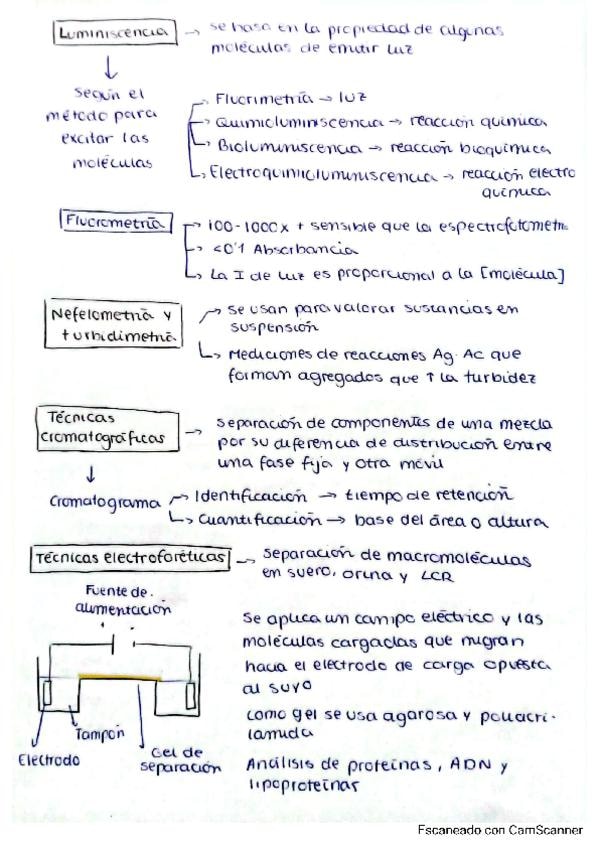 Luminiscencia → se basa en la propiedad de algunas
moléculas de emitir luz
Según el
método para
excitar las
moléculas
Fluorimetría → luz
Quimioluminiscencia → reacción química
Bioluminiscencia → reacción bioquímica
Electroquimioluminiscencia → reacción electro
química
Fluorometría
100-1000x + sensible que la espectrofotometrí
<0'1 Absorbancia
La I de luz es proporcional a la [molécula]
Nefelometría y
turbidimetría
se usan para valorar sustancias en
suspensión
Mediciones de reacciones Ag-Ac que
forman agregados que ↑ la turbidez
Técnicas
cromatográficas
→ separación de componentes de una mezcla
por su diferencia de distribución entre
una fase fija y otra móvil
Cromatograma
Identificación → tiempo de retención
Cuantificación → base del área o altura
Técnicas electroforéticas → separación de macromoléculas
en suero, orina y LCR
Fuente de
alimentación
Tampón
Electrodo
Gel de
separación
Se aplica un campo eléctrico y las
moléculas cargadas que migran
hacia el electrodo de carga opuesta
al suyo
como gel se usa agarosa y poliacri-
lamida
Análisis de proteínas, ADN y
lipoproteínas
Escaneado con CamScanner